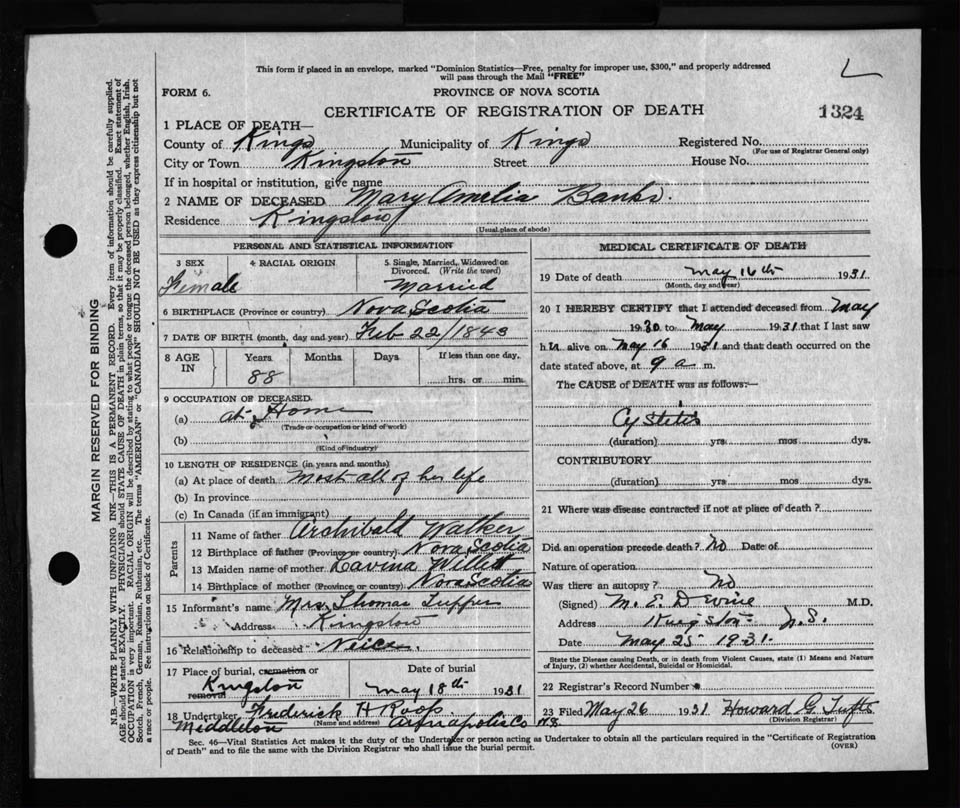 This form if placed in an envelope, marked "Dominion Statistics—Free, penalty for improper use, $300," and properly addressed
will pass through the Mail "FREE"
FORM 6.
PROVINCE OF NOVA SCOTIA
CERTIFICATE OF REGISTRATION OF DEATH
1324
1 PLACE OF DEATH—
County of Kings Municipality of Kings Registered No.
(For use of Registrar General only)
City or Town Kingston Street House No.
If in hospital or institution, give name
2 NAME OF DECEASED Mary Amelia Banks.
Residence Kingston
(Usual place of abode)
PERSONAL AND STATISTICAL INFORMATION
3 SEX 4 RACIAL ORIGIN 5 Single, Married, Widowed or
Divorced. (Write the word)
Female Married
6 BIRTHPLACE (Province or country) Nova Scotia
7 DATE OF BIRTH (month, day and year) Feb 22/1843
8 AGE IN Years Months Days If less than one day,
88 hrs. or min.
9 OCCUPATION OF DECEASED
(a) at Home
(Trade or occupation or kind of work)
(b)
(Kind of industry)
10 LENGTH OF RESIDENCE (in years and months)
(a) At place of death Most all of her life
(b) In province
(c) In Canada (if an immigrant)
Parents
11 Name of father Archibald Walker
12 Birthplace of father (Province or country) Nova Scotia
13 Maiden name of mother Lavina Willett
14 Birthplace of mother (Province or country) Nova Scotia
15 Informant's name Mrs. Thomas Tupper
Address Kingston
16 Relationship to deceased Neice.
17 Place of burial, cremation or Date of burial
removal Kingston May 18th 1931
18 Undertaker Frederick H Roop
(Name and address)
Middleton Annapolis Co N.S.
MEDICAL CERTIFICATE OF DEATH
19 Date of death May 16th 1931
(Month, day and year)
20 I HEREBY CERTIFY that I attended deceased from May
1930 to May 1931 that I last saw
her alive on May 16 1931 and that death occurred on the
date stated above, at 9 a m.
The CAUSE of DEATH was as follows:—
Cystitis
(duration) yrs. mos. dys.
CONTRIBUTORY
(duration) yrs. mos. dys.
21 Where was disease contracted if not at place of death?
Did an operation precede death? No Date of
Nature of operation
Was there an autopsy? No
(Signed) M. E. Devine M.D.
Address Kingston N.S.
Date May 25 1931.
State the Disease causing Death, or in death from Violent Causes, state (1) Means and Nature
of Injury, (2) whether Accidental, Suicidal or Homicidal.
22 Registrar's Record Number
23 Filed May 26 1931 Howard G. Tufts
(Division Registrar)
Sec. 46—Vital Statistics Act makes it the duty of the Undertaker or person acting as Undertaker to obtain all the particulars required in the "Certificate of Registration
of Death" and to file the same with the Division Registrar who shall issue the burial permit.
(OVER)
MARGIN RESERVED FOR BINDING
N.B.—WRITE PLAINLY WITH UNFADING INK—THIS IS A PERMANENT RECORD. Every item of information should be carefully supplied.
AGE should be stated EXACTLY. PHYSICIANS should STATE CAUSE OF DEATH in plain terms, so that it may be properly classified. Exact statement of
OCCUPATION is very important. RACIAL ORIGIN will be described by stating to what people or tongue the deceased person belonged, whether English, Irish,
Scotch, French, German, Russian, Ruthenian, etc. The terms "AMERICAN" or "CANADIAN" SHOULD NOT BE USED as they express citizenship but not
a race or people. See instructions on back of Certificate.